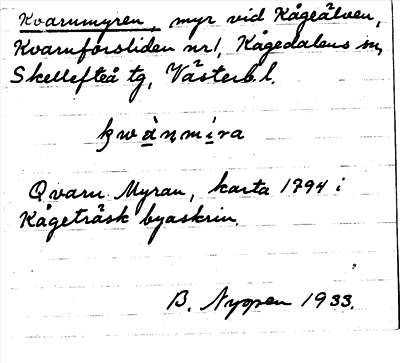 Kvarnmyren, myr vid Kågeälven,
Kvarnforsliden nr 1, Kågedalens sn,
Skellefteå tg, Västerb. l.
kwànmíra
Qvarn Myran, karta 1794 i
Kågeträsk byaskrin.
B. Nygren 1933.